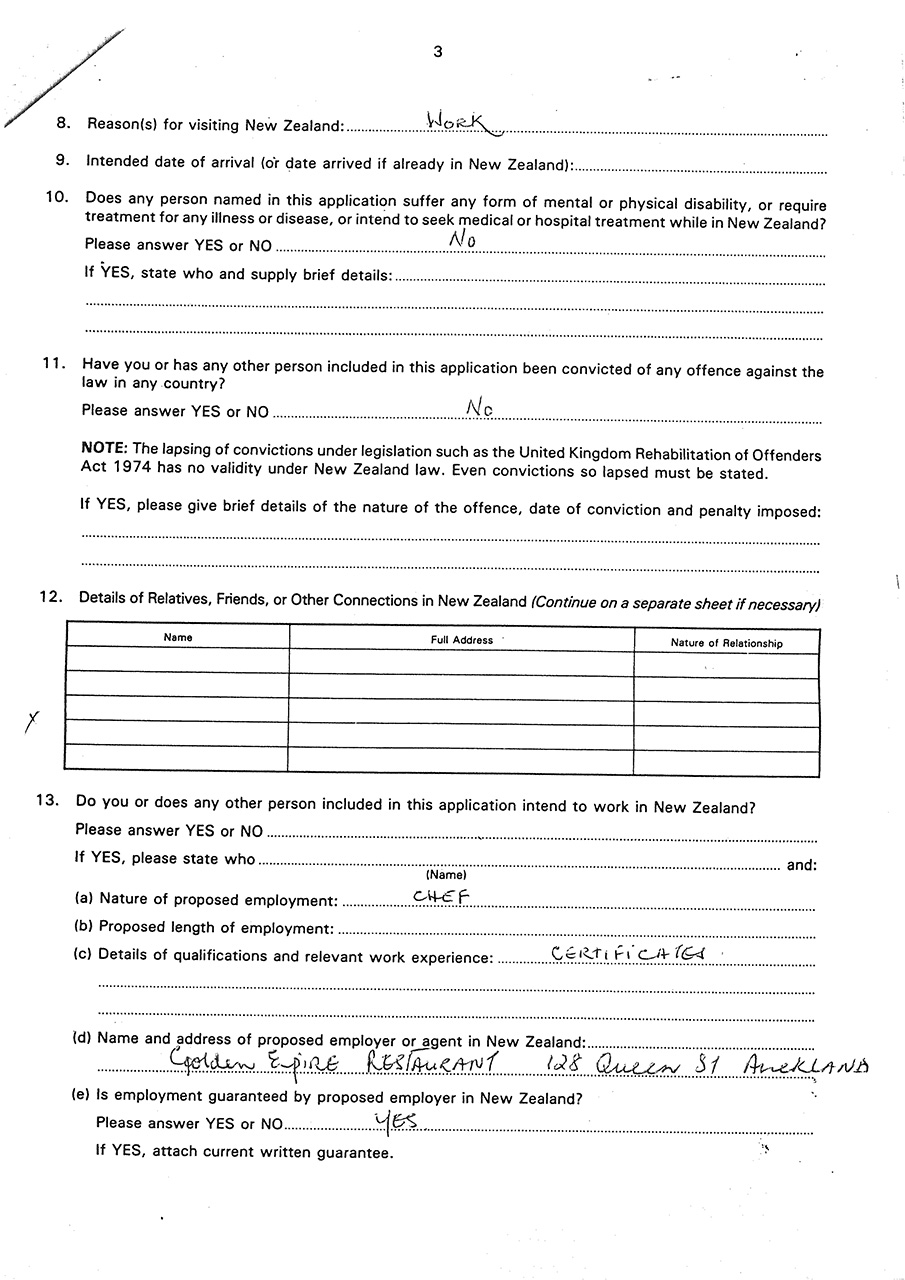 3
8. Reason(s) for visiting New Zealand: WORK
9. Intended date of arrival (or date arrived if already in New Zealand):
10. Does any person named in this application suffer any form of mental or physical disability, or require
treatment for any illness or disease, or intend to seek medical or hospital treatment while in New Zealand?
Please answer YES or NO No
If YES, state who and supply brief details:
11. Have you or has any other person included in this application been convicted of any offence against the
law in any country?
Please answer YES or NO No
NOTE: The lapsing of convictions under legislation such as the United Kingdom Rehabilitation of Offenders
Act 1974 has no validity under New Zealand law. Even convictions so lapsed must be stated.
If YES, please give brief details of the nature of the offence, date of conviction and penalty imposed:
12. Details of Relatives, Friends, or Other Connections in New Zealand (Continue on a separate sheet if necessary)
Name Full Address Nature of Relationship
X
13. Do you or does any other person included in this application intend to work in New Zealand?
Please answer YES or NO
If YES, please state who and:
(Name)
(a) Nature of proposed employment: CHEF
(b) Proposed length of employment:
(c) Details of qualifications and relevant work experience: CERTIFICATES
(d) Name and address of proposed employer or agent in New Zealand:
Golden EpIRE RESTAURANT 128 Queen St AucKLAND
(e) Is employment guaranteed by proposed employer in New Zealand?
Please answer YES or NO YES
If YES, attach current written guarantee.